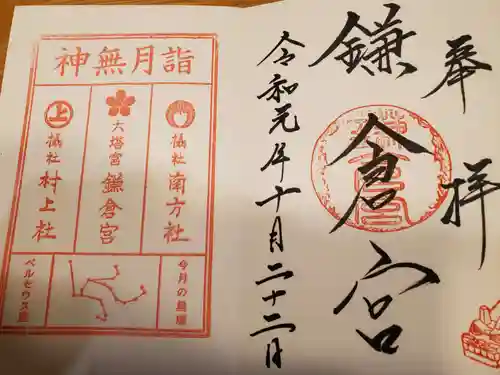 奉拝
鎌倉宮
令和元年十月二十二月
神無月詣
摂社 南方社
大塔宮 鎌倉宮
上
摂社 村上社
今月の星座
ペルセウス座